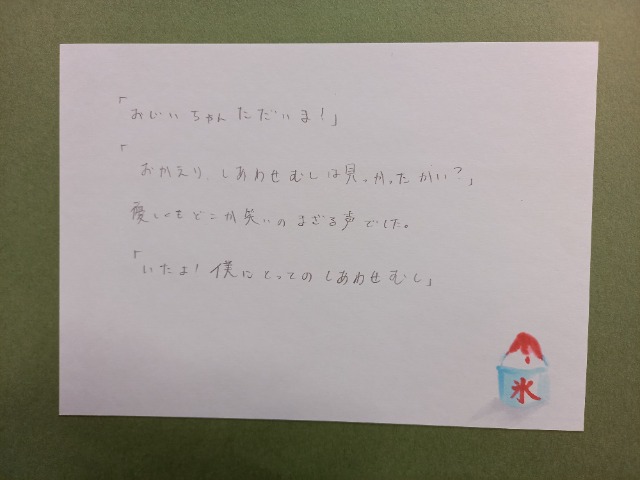 「おじいちゃんただいま!」
「
おかえり、しあわせむしは見つかったかい?」
優しくもどこか笑いのまざる声でした。
「いたよ!僕にとってのしあわせむし」
氷